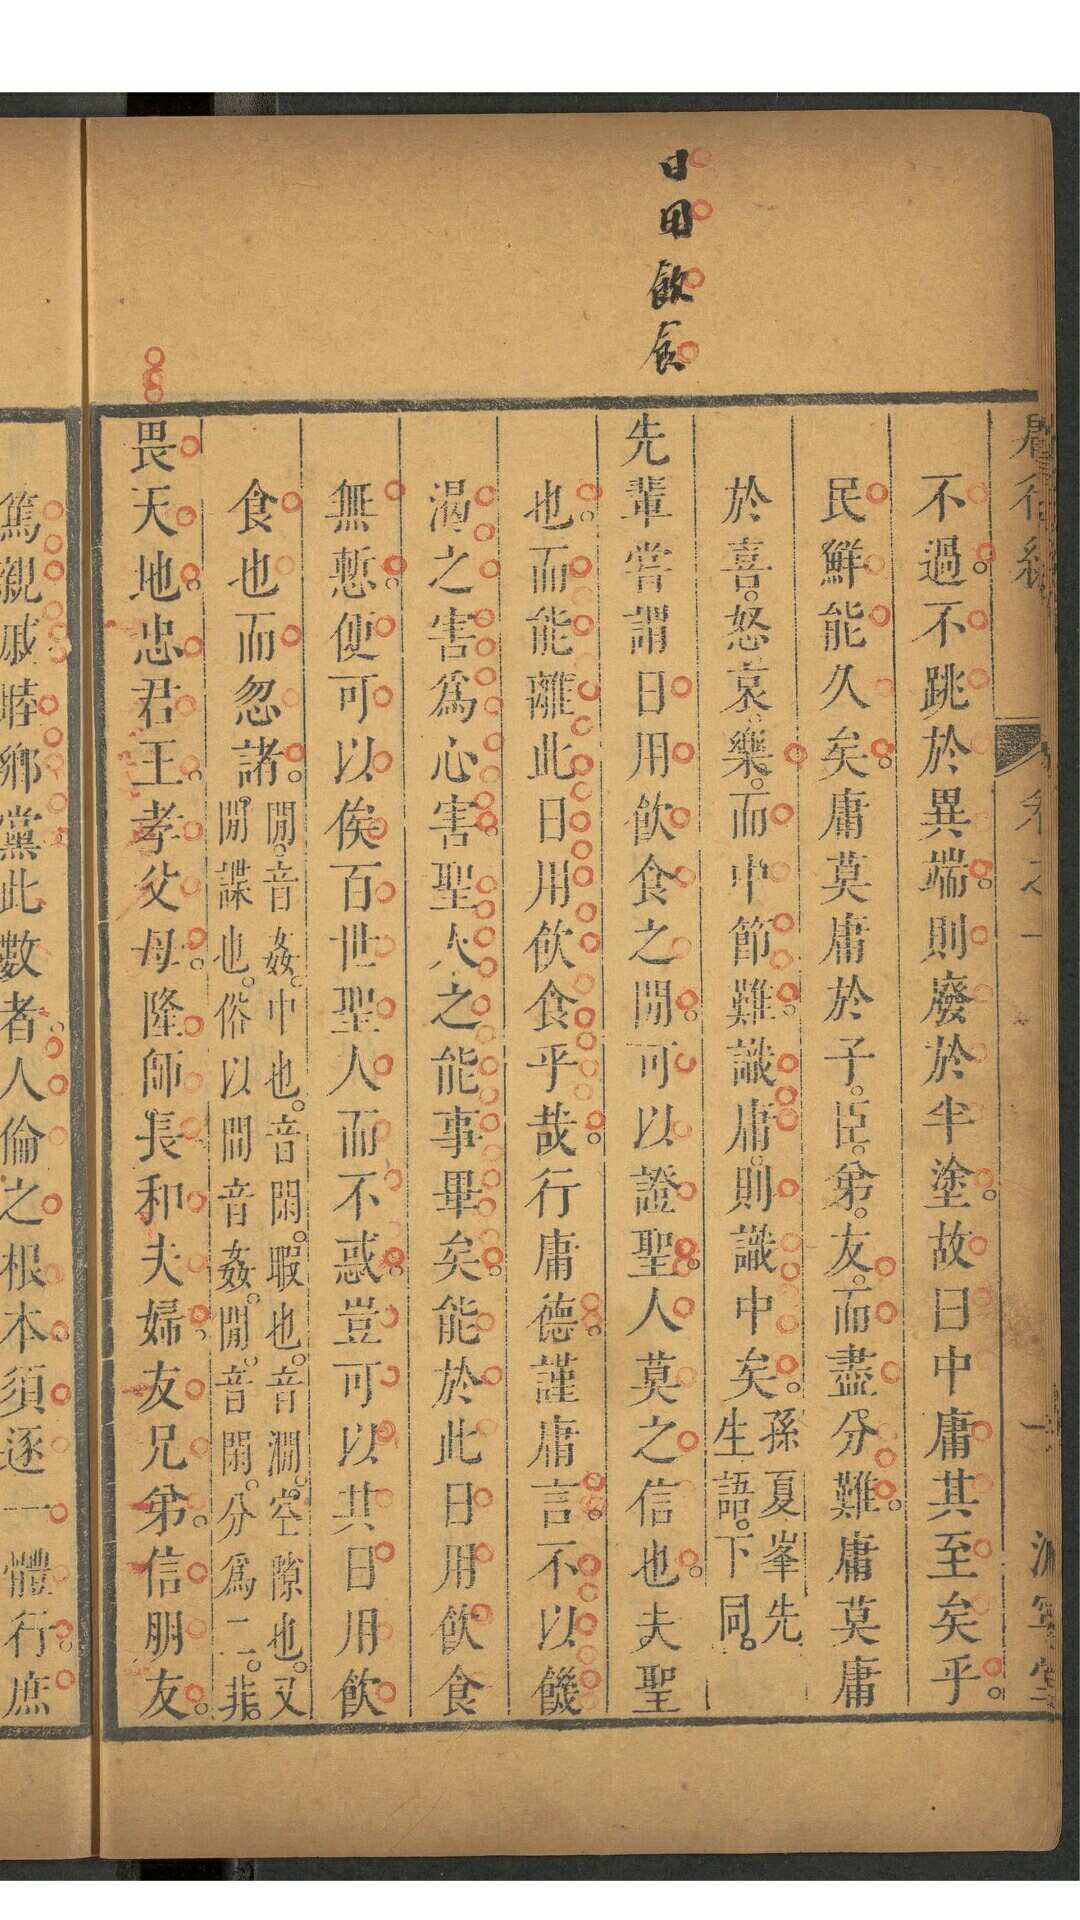 日用飲食
卷之一
一
不過不跳於異端則廢於半塗故曰中庸其至矣乎
民鮮能久矣庸莫庸於子臣弟友而盡分難庸莫庸
於喜怒哀樂而中節難識庸則識中矣孫夏峯先
生語下同
先輩嘗謂日用飲食之閒可以證聖人莫之信也夫聖
也而能離此日用飲食乎哉行庸德謹庸言不以饑
渴之害爲心害聖人之能事畢矣能於此日用飲食
無慙便可以俟百世聖人而不惑豈可以其日用飲
食也而忽諸閒音姦中也音閑暇也音澗空隙也又
閒諜也俗以間音姦閒音閑分爲二非
畏天地忠君王孝父母隆師長和夫婦友兄弟信朋友
篤親戚睦鄉黨此數者人倫之根本須逐一體行庶